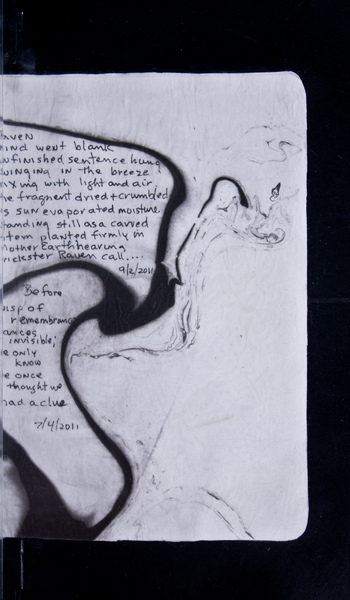 aven
ind went blank
nfinished sentence hung
winging in the breeze
ixing with light and air.
he fragment dried + crumbled
s sun evaporated moisture.
tanding still as a carved
otem planted firmly in
other Earth hearing
rickster Raven call....
9/2/2011
Before
isp of
remembrance
ances
invisible;
e only
know
e once
thought we
had a clue
7/4/2011